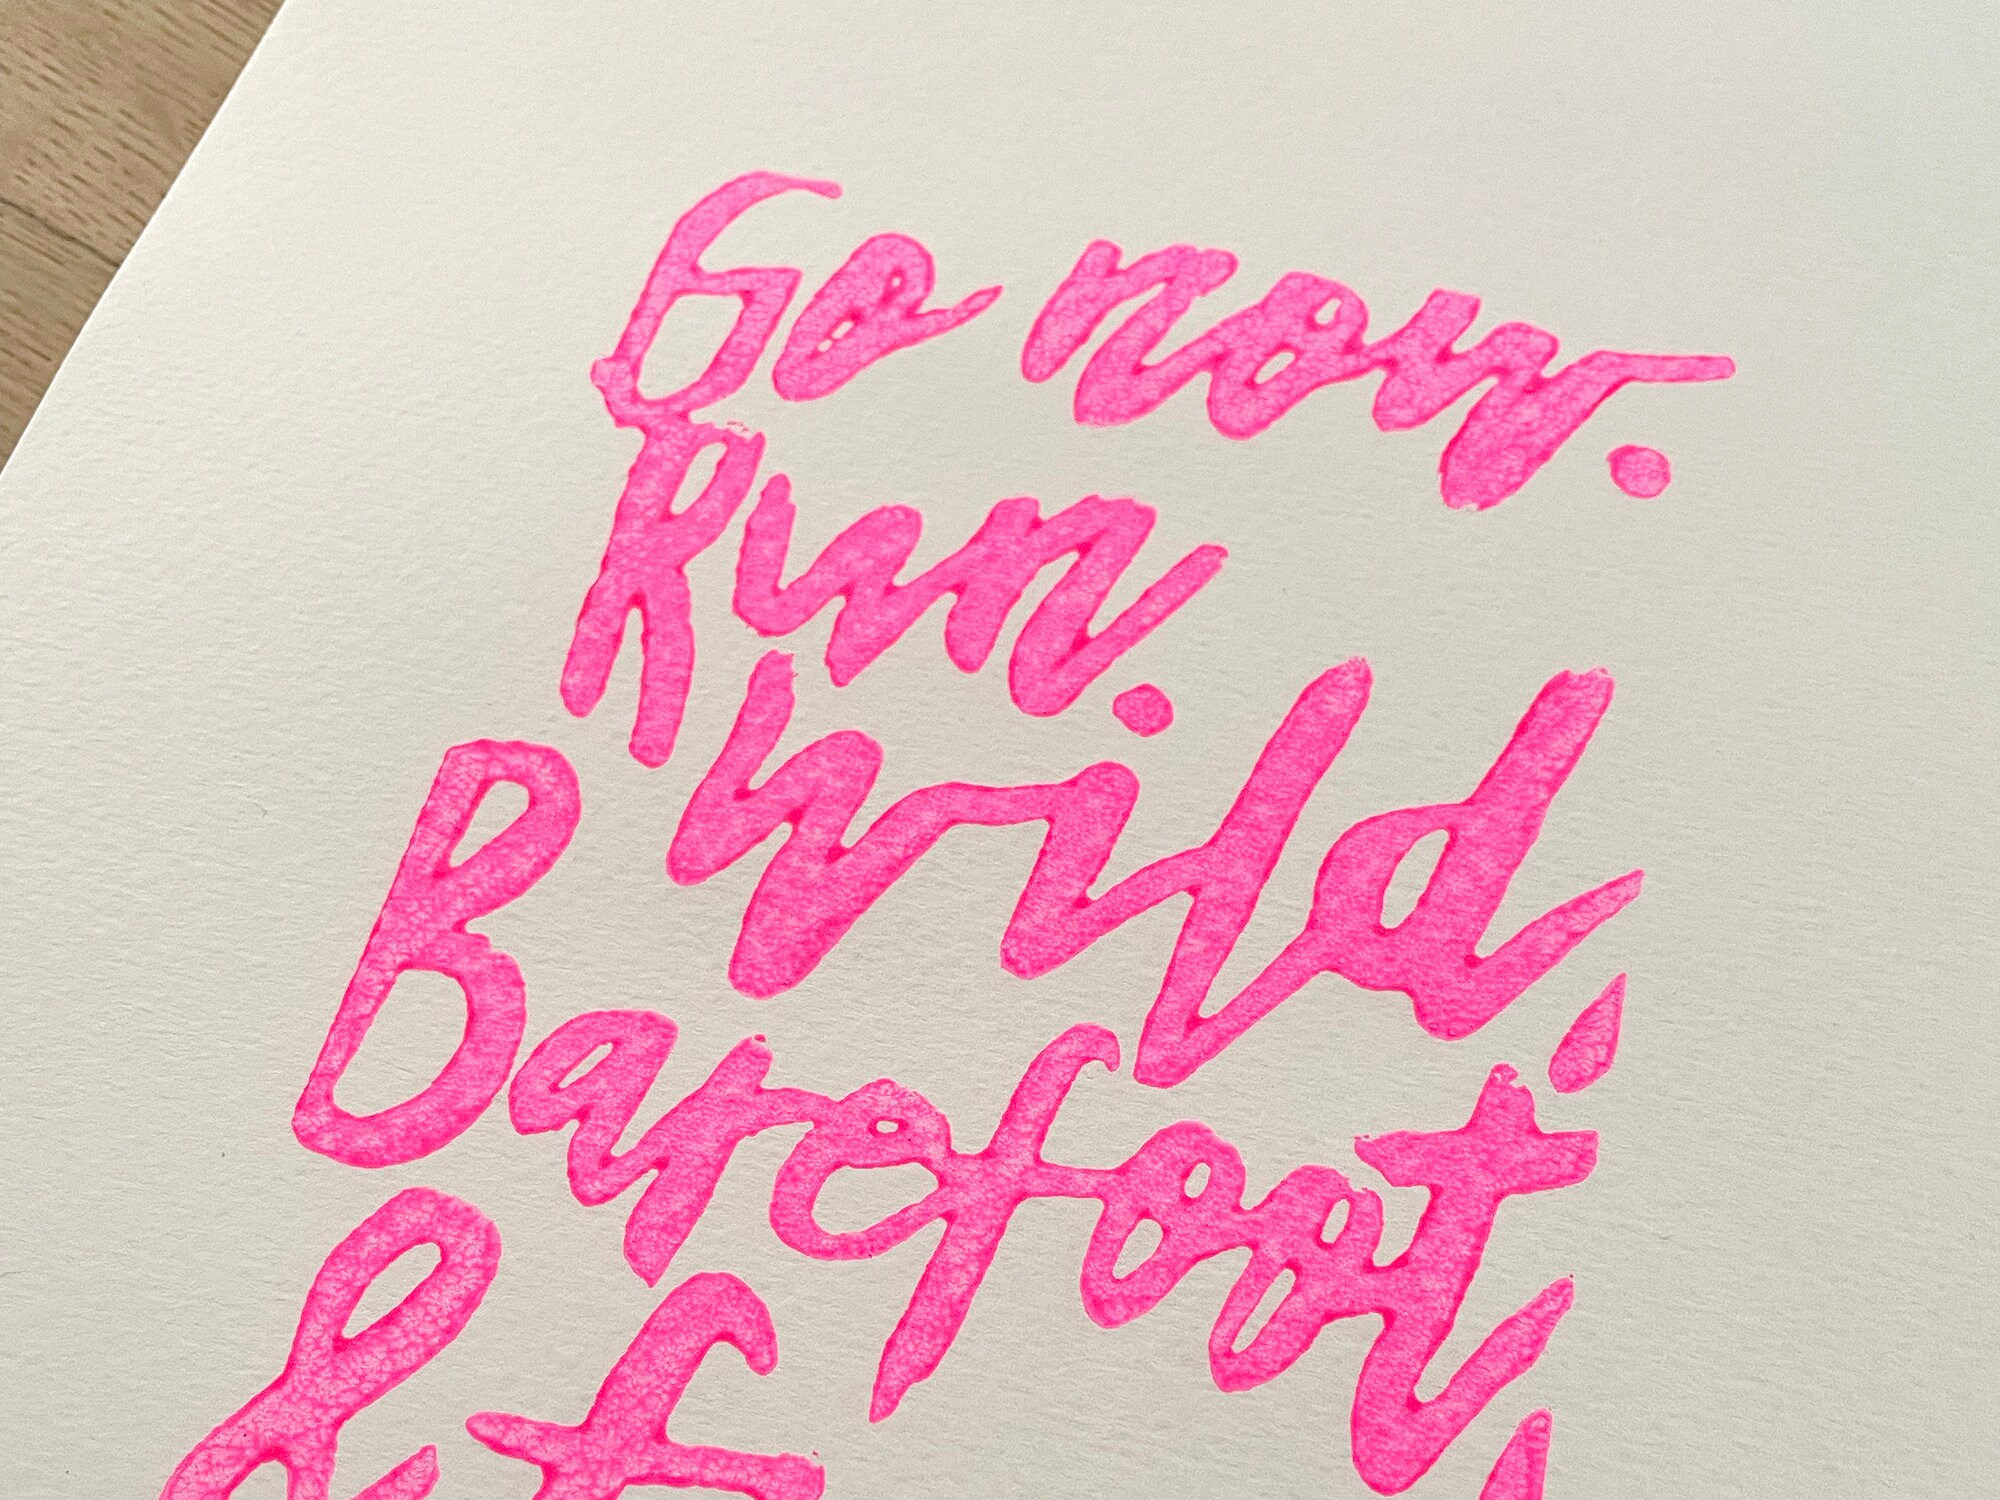 Go now.
Run.
wild,
Barefoot,
&